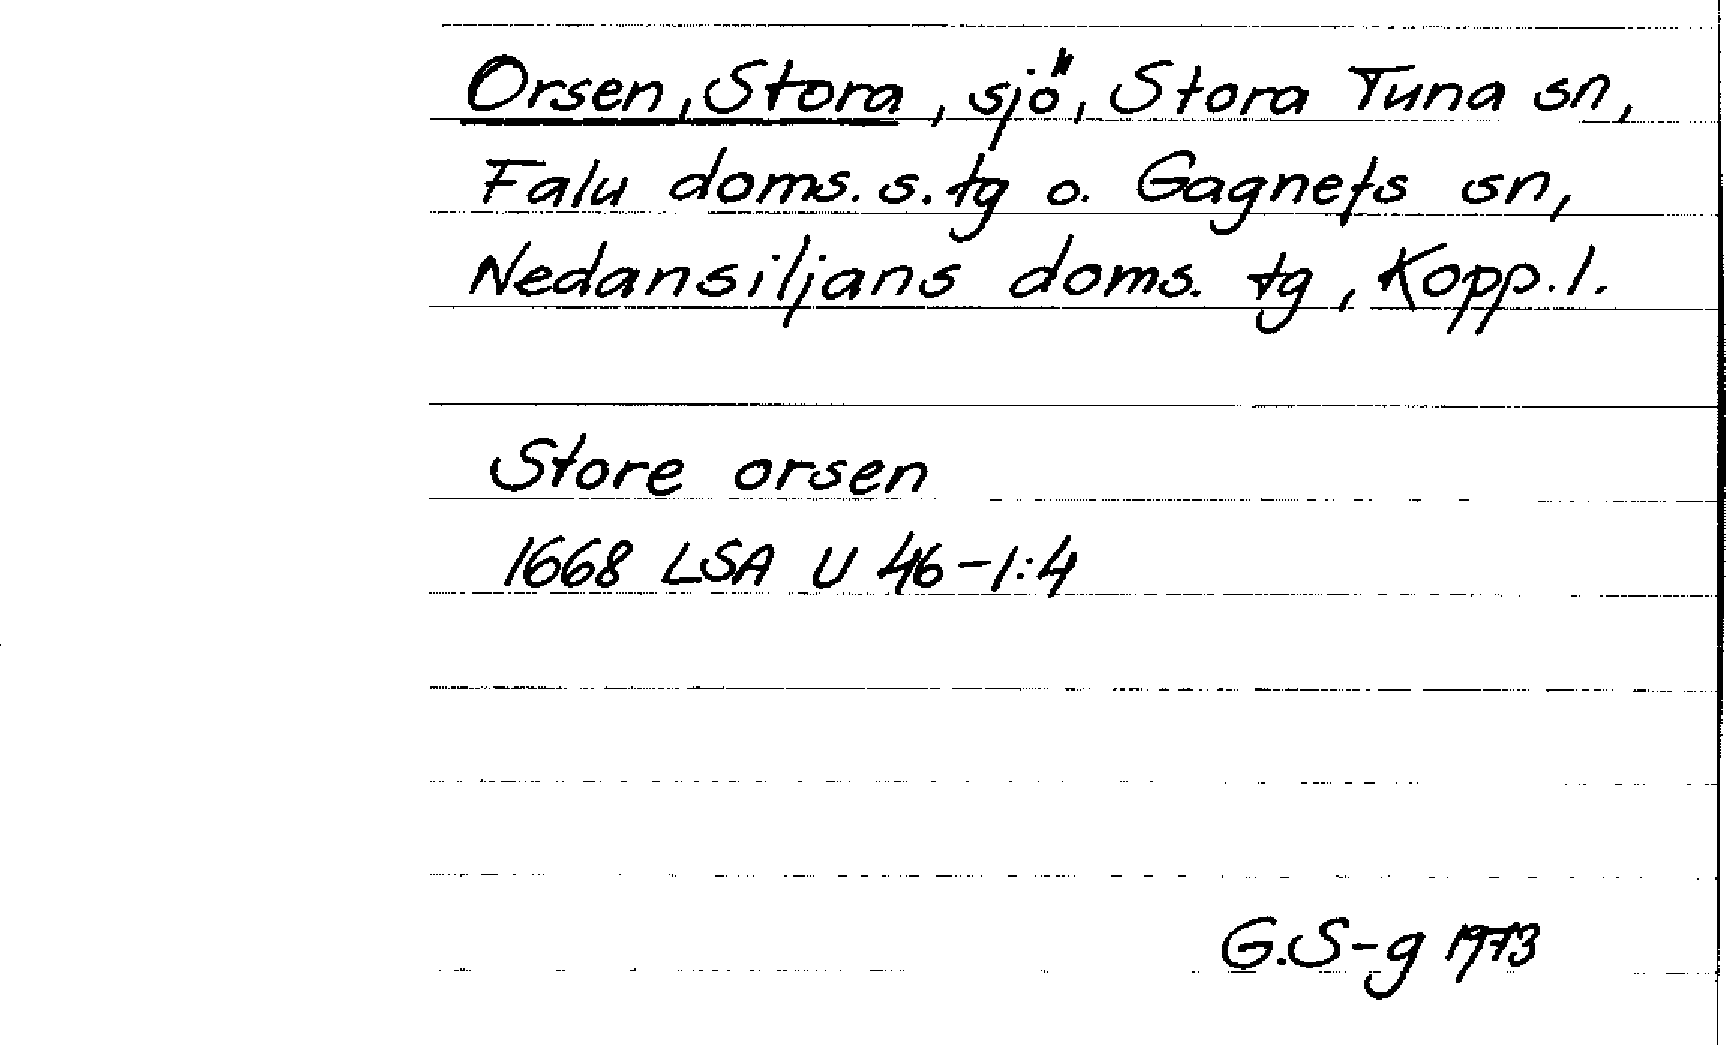 Orsen, Stora, sjö, Stora Tuna sn,
Falu doms. s. tg o. Gagnefs sn,
Nedansiljans doms. tg, Kopp. l.
Store orsen
1668 LSA U 46-1:4
G.S-g 1973